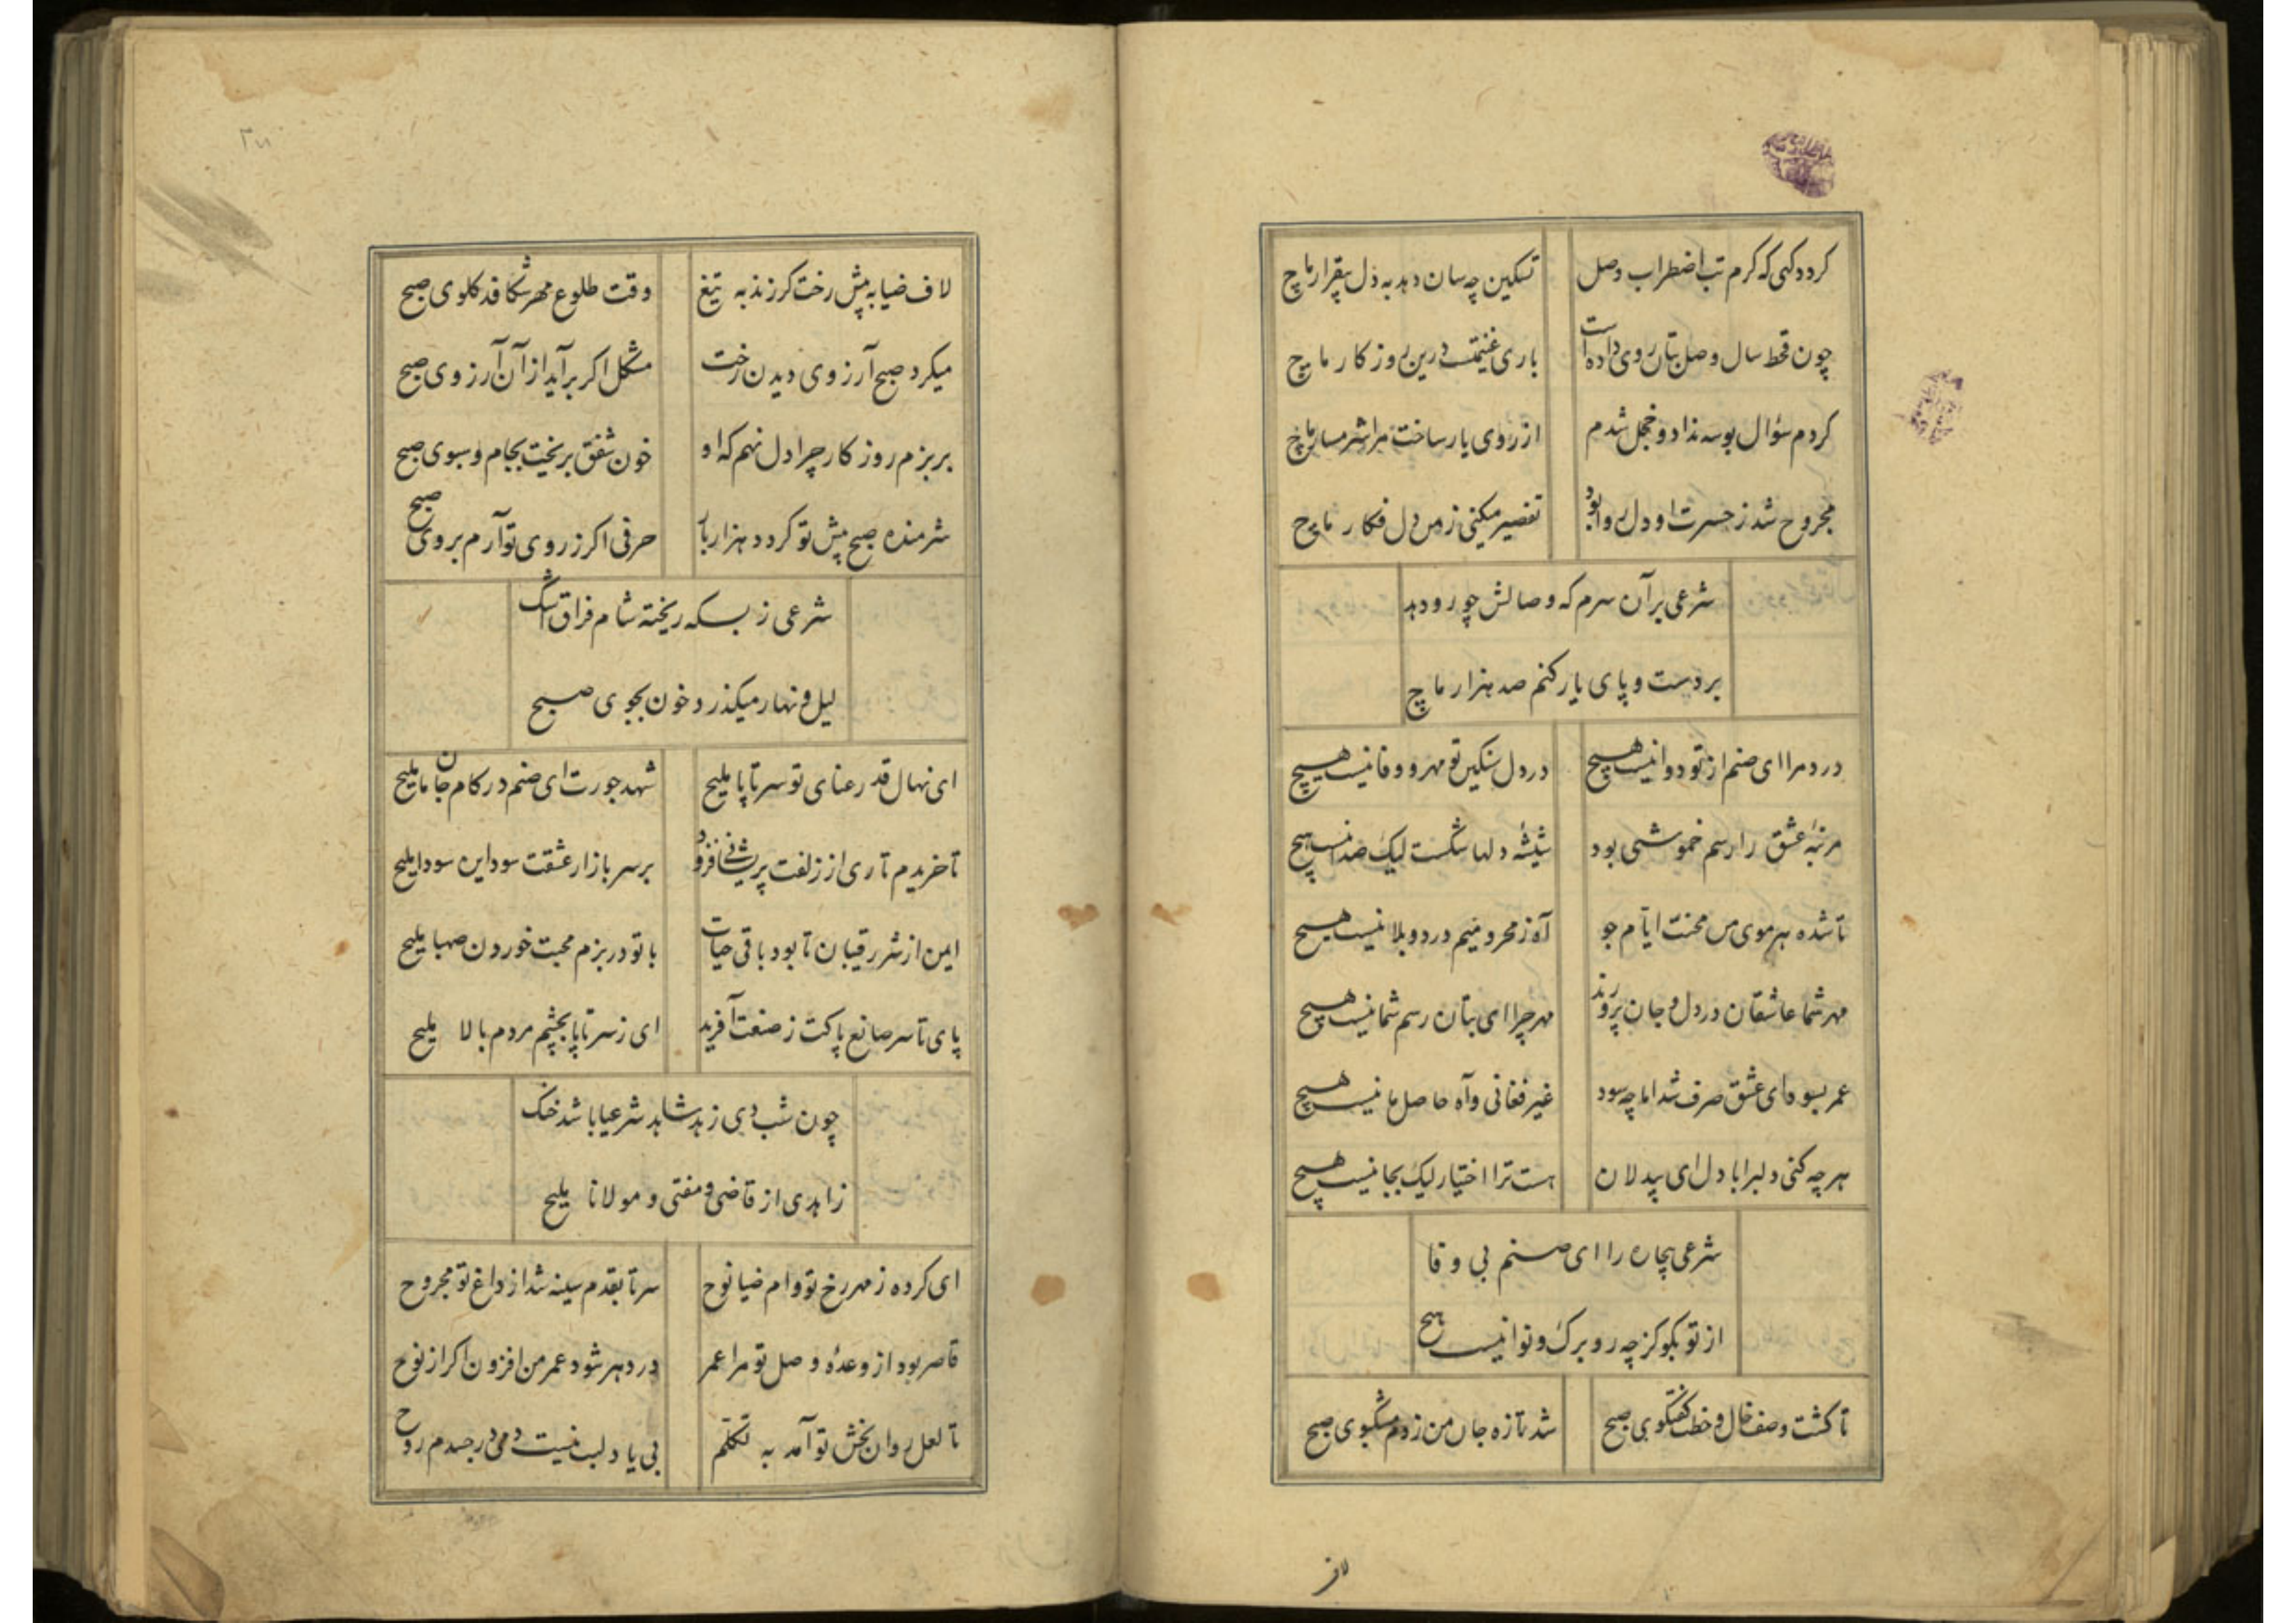 کردد کهی که کرم تب اضطراب وصل تسکین چه سان دهد به دل بیقرار ماچ
چون قحط سال وصل بتان روی داده است باری غنیمت درین روزکار ماچ
کردم سؤال بوسه نداد و خجل شدم از روی یار ساخت مرا شرمسار ماچ
مجروح شد ز حسرت او دل روا بود تقصیر میکنی ز من دل فکار ماچ
شرعی بر آن سرم که وصالش چو رو دهد
بر دست و پای یار کنم صد هزار ماچ
درد مرا ای صنم از تو دوا نیست هیچ در دل سنکین تو مهر و وفا نیست هیچ
مرتبهٔ عشق را رسم خموشی بود شیشهٔ دلها شکست لیک صدا نیست هیچ
تا شده هر موی من محنت ایام جو آه ز محرومیم درد و بلا نیست هیچ
مهر شما عاشقان در دل و جان پرورند مهر چرا ای بتان رسم شما نیست هیچ
عمر بسودای عشق صرف شد اما چه سود غیر فغانی و آه حاصل ما نیست هیچ
هر چه کنی دلبرا با دل ای بیدلان هست ترا اختیار لیک بجا نیست هیچ
شرعی بیچاره را ای صنم بی وفا
از تو بکو کز چه رو برک و نوا نیست هیچ
تا کشت وصف خال و خطت کفتکوی صبح شد تازه جان من ز دم مشکبوی صبح
لاف
لاف ضیا به پیش رخت کر زند به تیغ وقت طلوع مهر شکافد کلوی صبح
میکرد صبح آرزوی دیدن رخت مشکل اکر برآید از آن آرزوی صبح
بر بزم روزکار چرا دل نهم که او خون شفق بریخت بجام و سبوی صبح
شرمنده صبح پیش تو کردد هزار بار حرفی اکر ز روی تو آرم بروی صبح
شرعی ز بسکه ریخته شام فراق اشک
لیل و نهار میکذرد خون بجوی صبح
ای نهال قد رعنای تو سر تا پا ملیح شهد جورت ای صنم در کام جان ما ملیح
تا خریدم تاری از زلفت پریشانی فزود بر سر بازار عشقت سود این سودا ملیح
ایمن از شر رقیبان تا بود باقی حیات با تو در بزم محبت خوردن صهبا ملیح
پای تا سر صانع پاکت ز صنعت آفرید ای ز سر تا پا بچشم مردم بالا ملیح
چون شب دی زهد شاهد شرعیا باشد خنک
زاهدی از قاضی و مفتی و مولانا ملیح
ای کرده ز مهر رخ تو وام ضیا نوح سر تا بقدم سینه شد از داغ تو مجروح
قاصر بود از وعدهٔ وصل تو مرا عمر در دهر شود عمر من افزون اکر از نوح
تا لعل روان بخش تو آمد به تکلم بی یاد لبت نیست دمی در جسدم روح